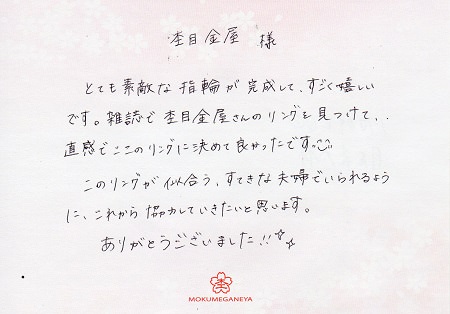 杢目金屋 様
とても素敵な指輪が完成して、すごく嬉しい
です。雑誌で杢目金屋さんのリングを見つけて、、
直感でここのリングに決めて良かったです
このリングが似合う、すてきな夫婦でいられるよう
に、これから協力していきたいと思います。
ありがとうございました!!
MOKUMEGANEYA